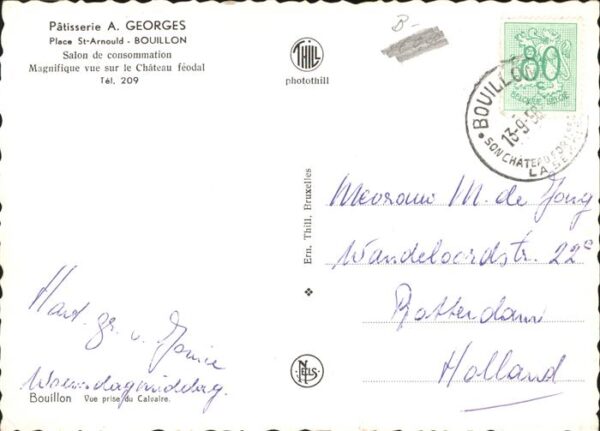 Pâtisserie A. GEORGES
Place St-Arnould - BOUILLON
Salon de consommation
Magnifique vue sur le Château féodal
Tél. 209
THILL
photothill
B-
80
BELGIQUE BELGIË
BOUILLON
13-9-58
SON CHÂTEAU
LA SEMOIS
Ern. Thill, Bruxelles
NELS
Mevrouw M. de Jong
Wandeloordstr. 22a
Rotterdam
Holland
Hart. gr. v.
Woensdagmiddag.
Bouillon Vue prise du Calvaire.